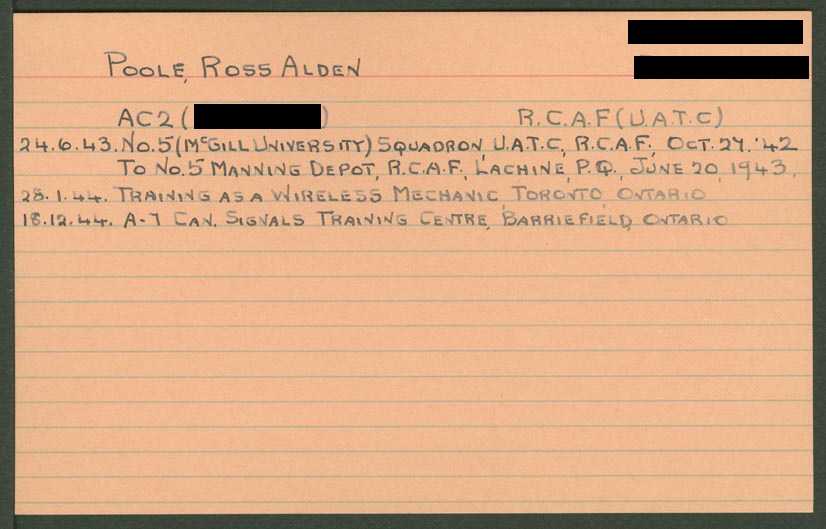 POOLE, ROSS ALDEN
AC2 ( ) R.C.A.F (U.A.T.C)
24.6.43. NO. 5 (MCGILL UNIVERSITY) SQUADRON, U.A.T.C, R.C.A.F. OCT. 27, '42
TO NO. 5 MANNING DEPOT, R.C.A.F, LACHINE, P.Q., JUNE 20, 1943.
28.1.44. TRAINING AS A WIRELESS MECHANIC, TORONTO, ONTARIO
18.12.44. A-7 CAN. SIGNALS TRAINING CENTRE, BARRIEFIELD, ONTARIO